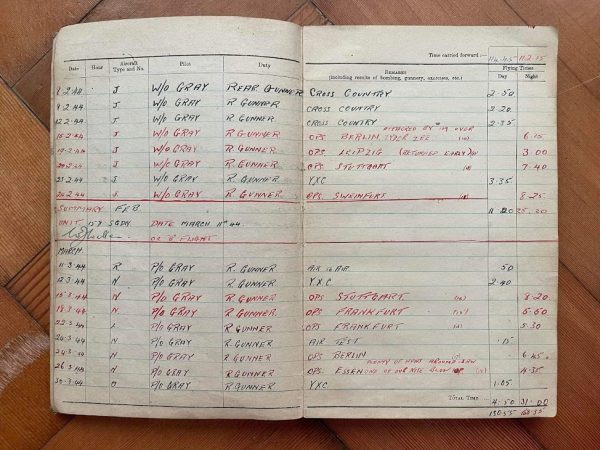 Time carried forward :— 116.45 112.15
Date Hour Aircraft Type and No. Pilot Duty REMARKS (including results of bombing, gunnery, exercises, etc.) Flying Times Day Night
8.2.44 J W/O GRAY REAR GUNNER CROSS COUNTRY 2.50
9.2.44 J W/O GRAY R GUNNER CROSS COUNTRY 2.20
12.2.44 J W/O GRAY R. GUNNER CROSS COUNTRY 2.35
15.2.44 J W/O GRAY R. GUNNER OPS BERLIN ATTACKED BY OVER 6.15
19.2.44 J W/O GRAY R. GUNNER OPS LEIPZIG (RETURNED EARLY) 3.00
20.2.44 J W/O GRAY R. GUNNER OPS STUTTGART 7.40
23.2.44 J W/O GRAY R. GUNNER YXC 3.35
24.2.44 J W/O GRAY R. GUNNER OPS. SWEINFURT 8.25
SUMMARY FEB. 11.20 25.20
UNIT 157 SQDN. DATE MARCH 1st 44.
OC 'B' FLIGHT
MARCH
11.3.44 R P/O GRAY R. GUNNER AIR to AIR .50
12.3.44 N P/O GRAY R. GUNNER YXC 2.40
15.3.44 N P/O GRAY R GUNNER OPS STUTTGART 8.20
18.3.44 N P/O GRAY R GUNNER OPS FRANKFURT 5.50
22.3.44 L P/O GRAY R GUNNER OPS FRANKFURT 5.30
24.3.44 N P/O GRAY R GUNNER AIR TEST .15
24.3.44 N P/O GRAY R GUNNER OPS BERLIN 6.45
26.3.44 N P/O GRAY R GUNNER OPS ESSEN PLENTY OF HEAVY AROUND. SAW ONE OF OUR KITES BLOW UP 4.35
30.3.44 O P/O GRAY R GUNNER YXC 1.05
TOTAL TIME 4.50 31.00